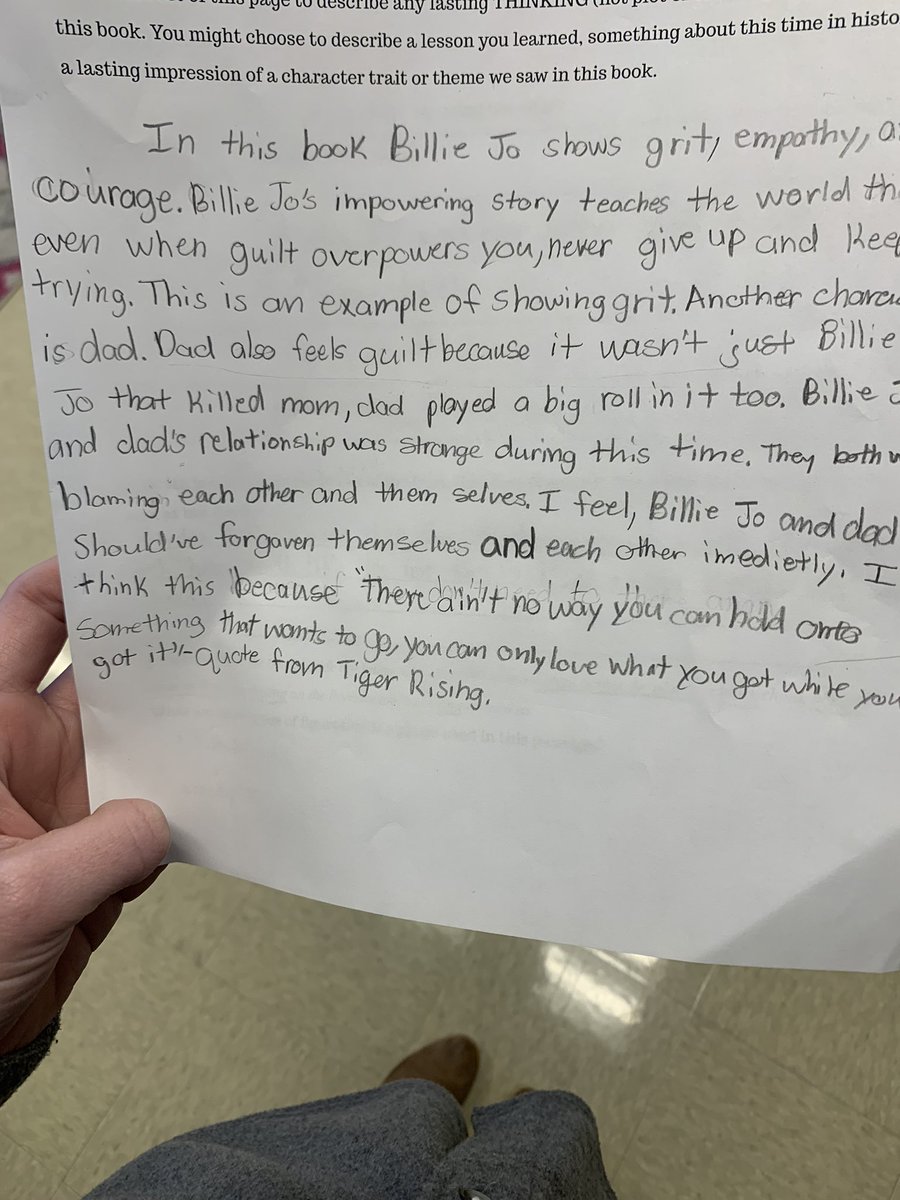 this page to describe any lasting THINKING (not
this book. You might choose to describe a lesson you learned, something about this time in histo
a lasting impression of a character trait or theme we saw in this book.
In this book Billie Jo shows grit, empathy, a
courage. Billie Jo's impowering story teaches the world th
even when guilt overpowers you, never give up and keep
trying. This is an example of showing grit. Another charac
is dad. Dad also feels guilt because it wasn't just Billie
Jo that killed mom, dad played a big roll in it too. Billie J
and dad's relationship was strange during this time. They both w
blaming each other and them selves. I feel, Billie Jo and dad
Should've forgaven themselves and each other imedietly. I
think this because "There ain't no way you can hold onto
something that wants to go, you can only love what you got while you
got it"- quote from Tiger Rising.